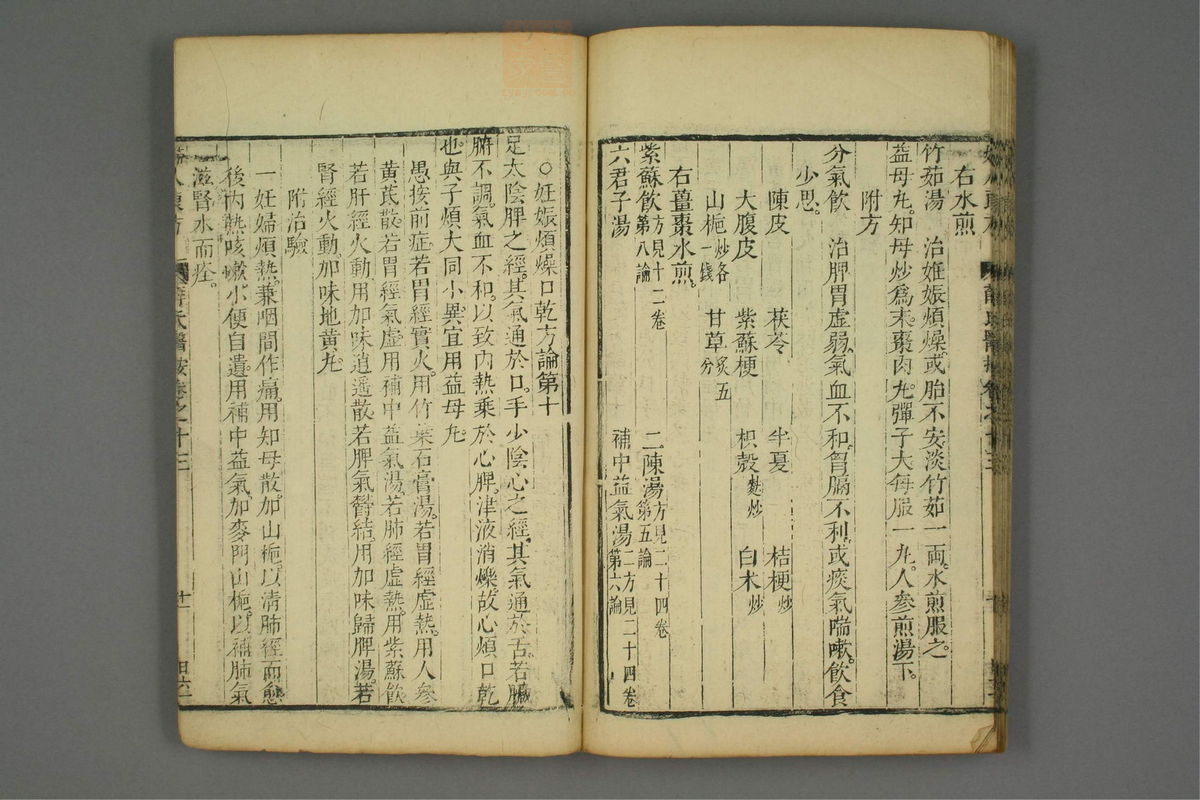 右水煎
竹茹湯　治姙娠煩燥。或胎不安淡竹茹一両。水煎服之。
益母丸。知母炒爲末。棗肉丸。彈子大每服一丸。人參煎湯下。
附方
分氣飲　治脾胃虛弱。氣血不和。胷膈不利。或痰氣喘嗽。飲食
少思。
陳皮　茯苓　半夏　桔梗炒
大腹皮　紫蘇梗　枳殼麩炒　白术炒
山梔炒各一錢　甘草炙五分
右薑棗水煎。
紫蘇飲方見十二卷第八論　二陳湯方見二十四卷第五論
六君子湯　補中益氣湯二方見二十四卷第六論
○妊娠煩燥口乾方論第十
足太陰脾之經。其氣通於口。手少陰心之經。其氣通於舌。若臟
腑不調。氣血不和。以致內熱乘於心脾。津液消爍。故心煩口乾
也與子煩大同小異。宜用益母丸。
愚按前症。若胃經實火。用竹葉石膏湯。若胃經虛熱。用人參
黃芪散。若胃經氣虛用補中益氣湯。若肺經虛熱。用紫蘇飲
若肝經火動用加味逍遥散若脾氣鬱結。用加味歸脾湯。若
腎經火動。加味地黃丸
附治驗
一妊婦煩熱。兼咽間作痛。用知母散。加山梔。以清肺經而愈
後內熱咳嗽小便自遺。用補中益氣。加麥門山梔。以補肺氣
滋腎水而痊。
薛氏醫按卷之十三
十一